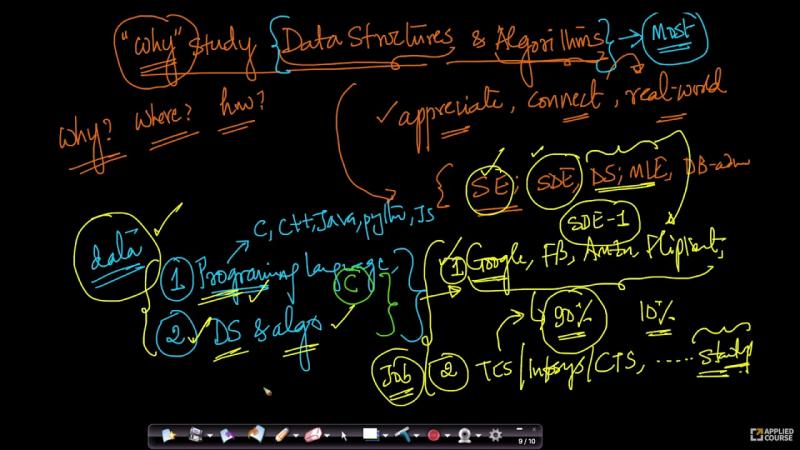 "why" study {Data Structures & Algorithms} → Most
why? where? how?
✓ appreciate, connect, real-world
{ SE; SDE, DS; MLE, DB-adm
SDE-1
data ✓
C, C++, Java, python, JS
1 Programing language,
C
2 DS & algo
1 Google, FB, Amzn, Flipkart,
90% 10%
Job
2 TCS/Infosys/CTS, ..... Startup
9 / 10
APPLIED
COURSE